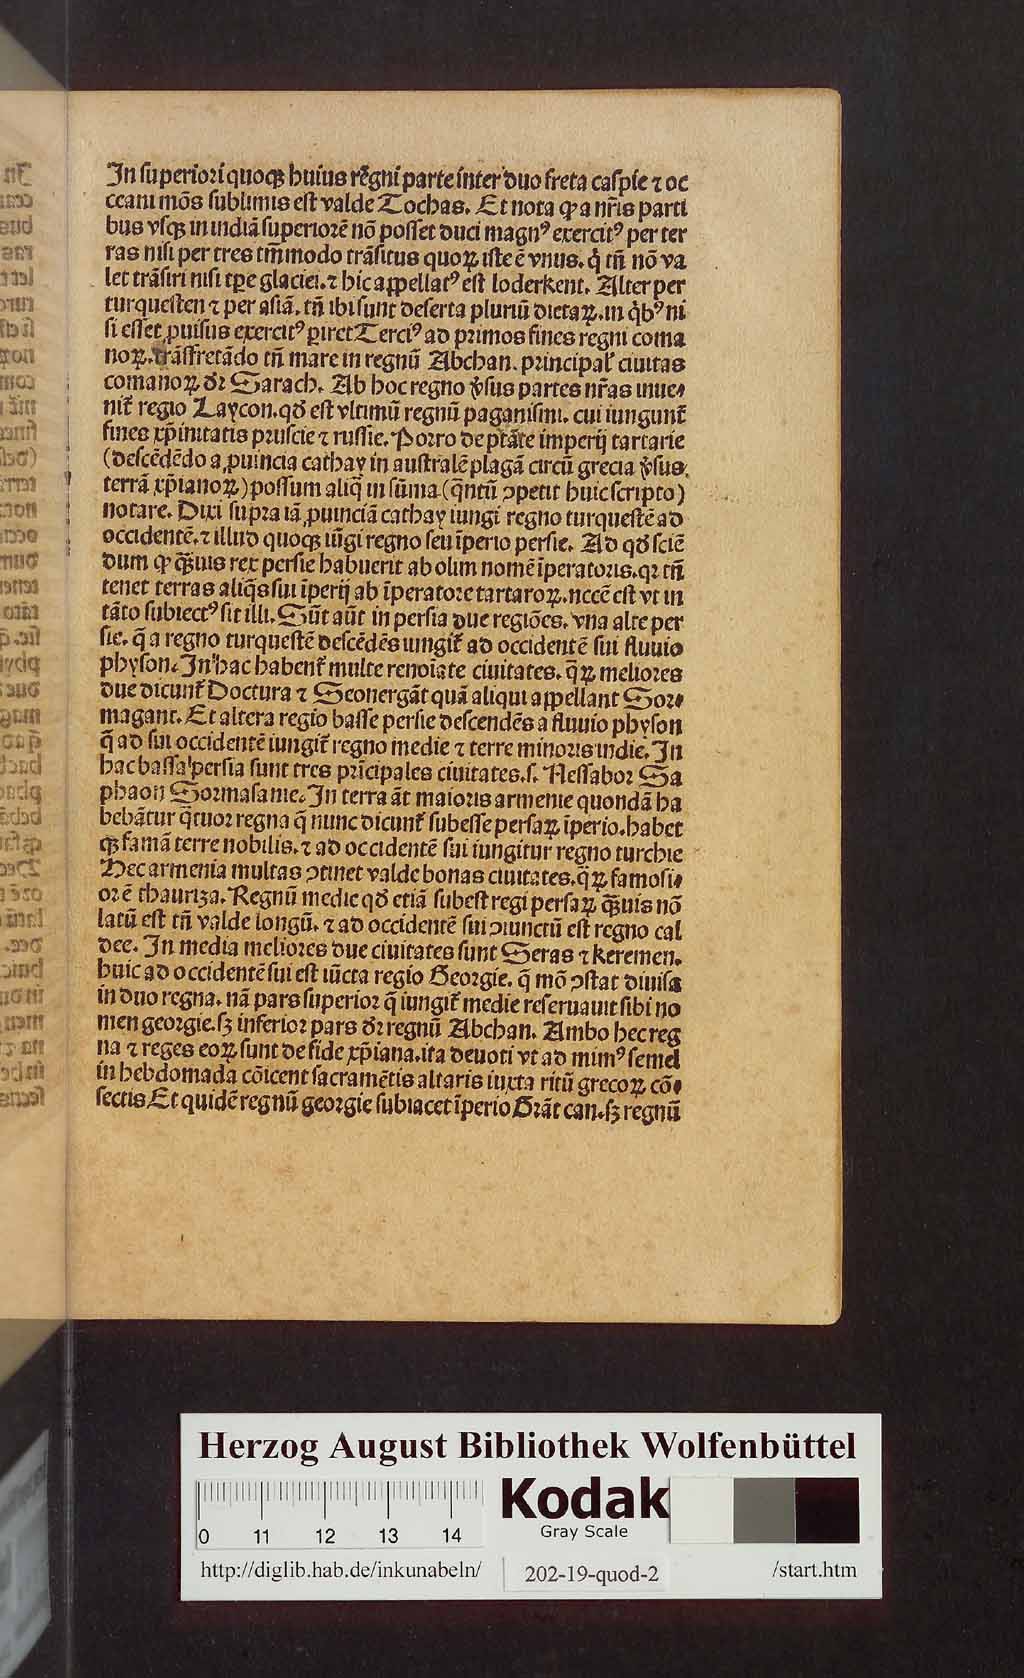 In superiori quoqꝫ huius regni parte inter duo freta caspie ⁊ oc
ceani mōs sublimis est valde Tochas. Et nota ꝙ a nr̄is parti
bus vsqꝫ in indiā superiorē nō posset duci magnꝰ exercitꝰ per ter
ras nisi per tres tm̄modo trāsitus quoꝝ iste ē vnus. q̇ tn̄ nō va
let trāsiri nisi tꝑe glaciei. ⁊ hic appellatꝰ est loderkent. Alter per
turquesten ⁊ per asiā. tn̄ ibi sunt deserta pluriū dietaꝝ. in q̇bꝰ ni
si esset ꝓuisus exercitꝰ ꝑiret Terciꝰ ad primos fines regni coma
noꝝ. trāsfretādo tn̄ mare in regnū Abchan. principal' ciuitas
comanoꝝ dr̄ Sarach. Ab hoc regno v̓sus partes nr̄as inue⸗
nit᷑ regio Laycon. qd̄ est vltimū regnū paganismi. cui iungunt᷑
fines xp̄initatis pruscie ⁊ russie. Porro de ptāte imperij tartarie
(descēdēdo a ꝓuincia cathay in australē plagā circū grecia v̓sus
terrā xp̄ianoꝝ) possum aliq̄ in sūma (q̄ntū ↄpetit huic scripto)
notare. Dixi supra iā ꝓuinciā cathay iungi regno turquestē ad
occidentē. ⁊ illud quoqꝫ iūgi regno seu īperio persie. Ad qd̄ sciē
dum ꝙ q̄ꝫuis rex persie habuerit ab olim nomē īperatoris. qꝛ tn̄
tenet terras aliq̄s sui īperij ab īperatore tartaroꝝ. nccē est vt in
tāto subiectꝰ sit illi. Sūt aūt in persia due regiōes. vna alte per
sie. q̄ a regno turquestē descēdēs iungit᷑ ad occidentē sui fluuio
physon. In hac habent᷑ multe renoīate ciuitates. q̄ꝝ meliores
due dicunt᷑ Doctura ⁊ Seonergāt quā aliqui appellant Sor⸗
magant. Et altera regio basse persie descendēs a fluuio physon
q̄ ad sui occidentē iungit᷑ regno medie ⁊ terre minoris indie. In
hac bassa persia sunt tres prīcipales ciuitates. s. Nessabor Sa
phaon Sormasanie. In terra āt maioris armenie quondā ha
bebātur q̄tuor regna q̄ nunc dicunt᷑ subesse persaꝝ īperio. habet
qꝫ famā terre nobilis. ⁊ ad occidentē sui iungitur regno turchie
Hec armenia multas ↄtinet valde bonas ciuitates. q̄ꝝ famosi⸗
or ē thauriza. Regnū medie qd̄ etiā subest regi persaꝝ q̄ꝫuis nō
latū est tn̄ valde longū. ⁊ ad occidentē sui ↄiunctū est regno cal
dee. In media meliores due ciuitates sunt Seras ⁊ keremen.
huic ad occidentē sui est iūcta regio Georgie. q̄ mō ↄstat diuisa
in duo regna. nā pars superior q̄ iungit᷑ medie reseruauit sibi no
men georgie. sꝫ inferior pars dr̄ regnū Abchan. Ambo hec reg
na ⁊ reges eoꝝ sunt de fide xp̄iana. ita deuoti vt ad minꝰ semel
in hebdomada cōicent sacramētis altaris iuxta ritū grecoꝝ cō⸗
fectis Et quidē regnū georgie subiacet īperio Grāt can. sꝫ regnū
Herzog August Bibliothek Wolfenbüttel
Kodak
Gray Scale
0 11 12 13 14
http://diglib.hab.de/inkunabeln/ 202-19-quod-2 /start.htm